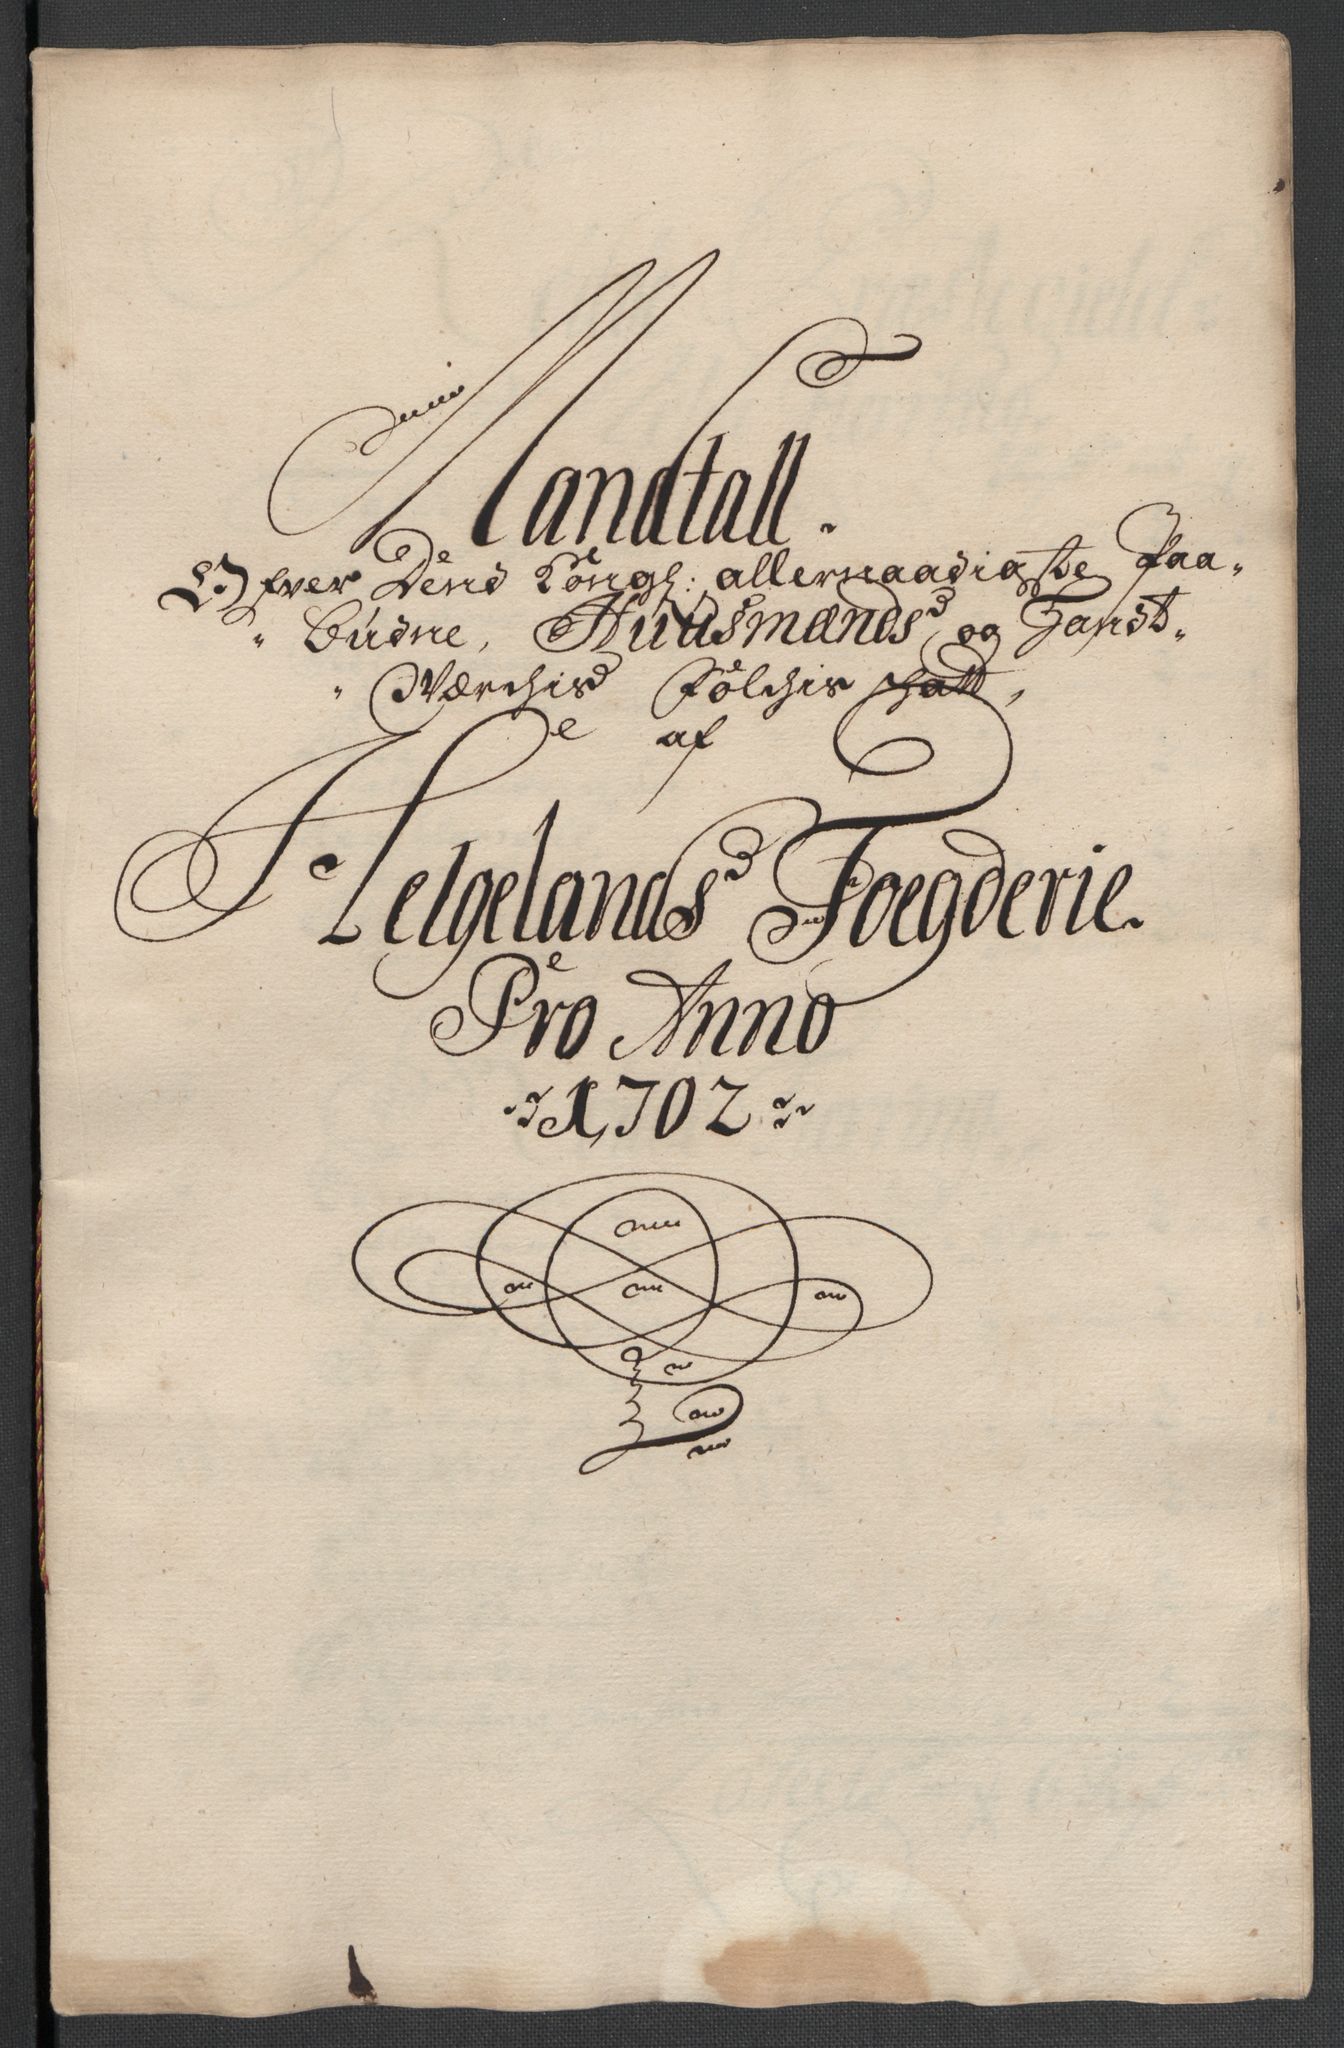 Mandtall.
Ofver Dend Kongl: allernaadigste Paa-
budne, Huusmænds, og Handt-
Værchis Folchis schatt,
af
Helgelands Foegderie.
Pro Anno
1702